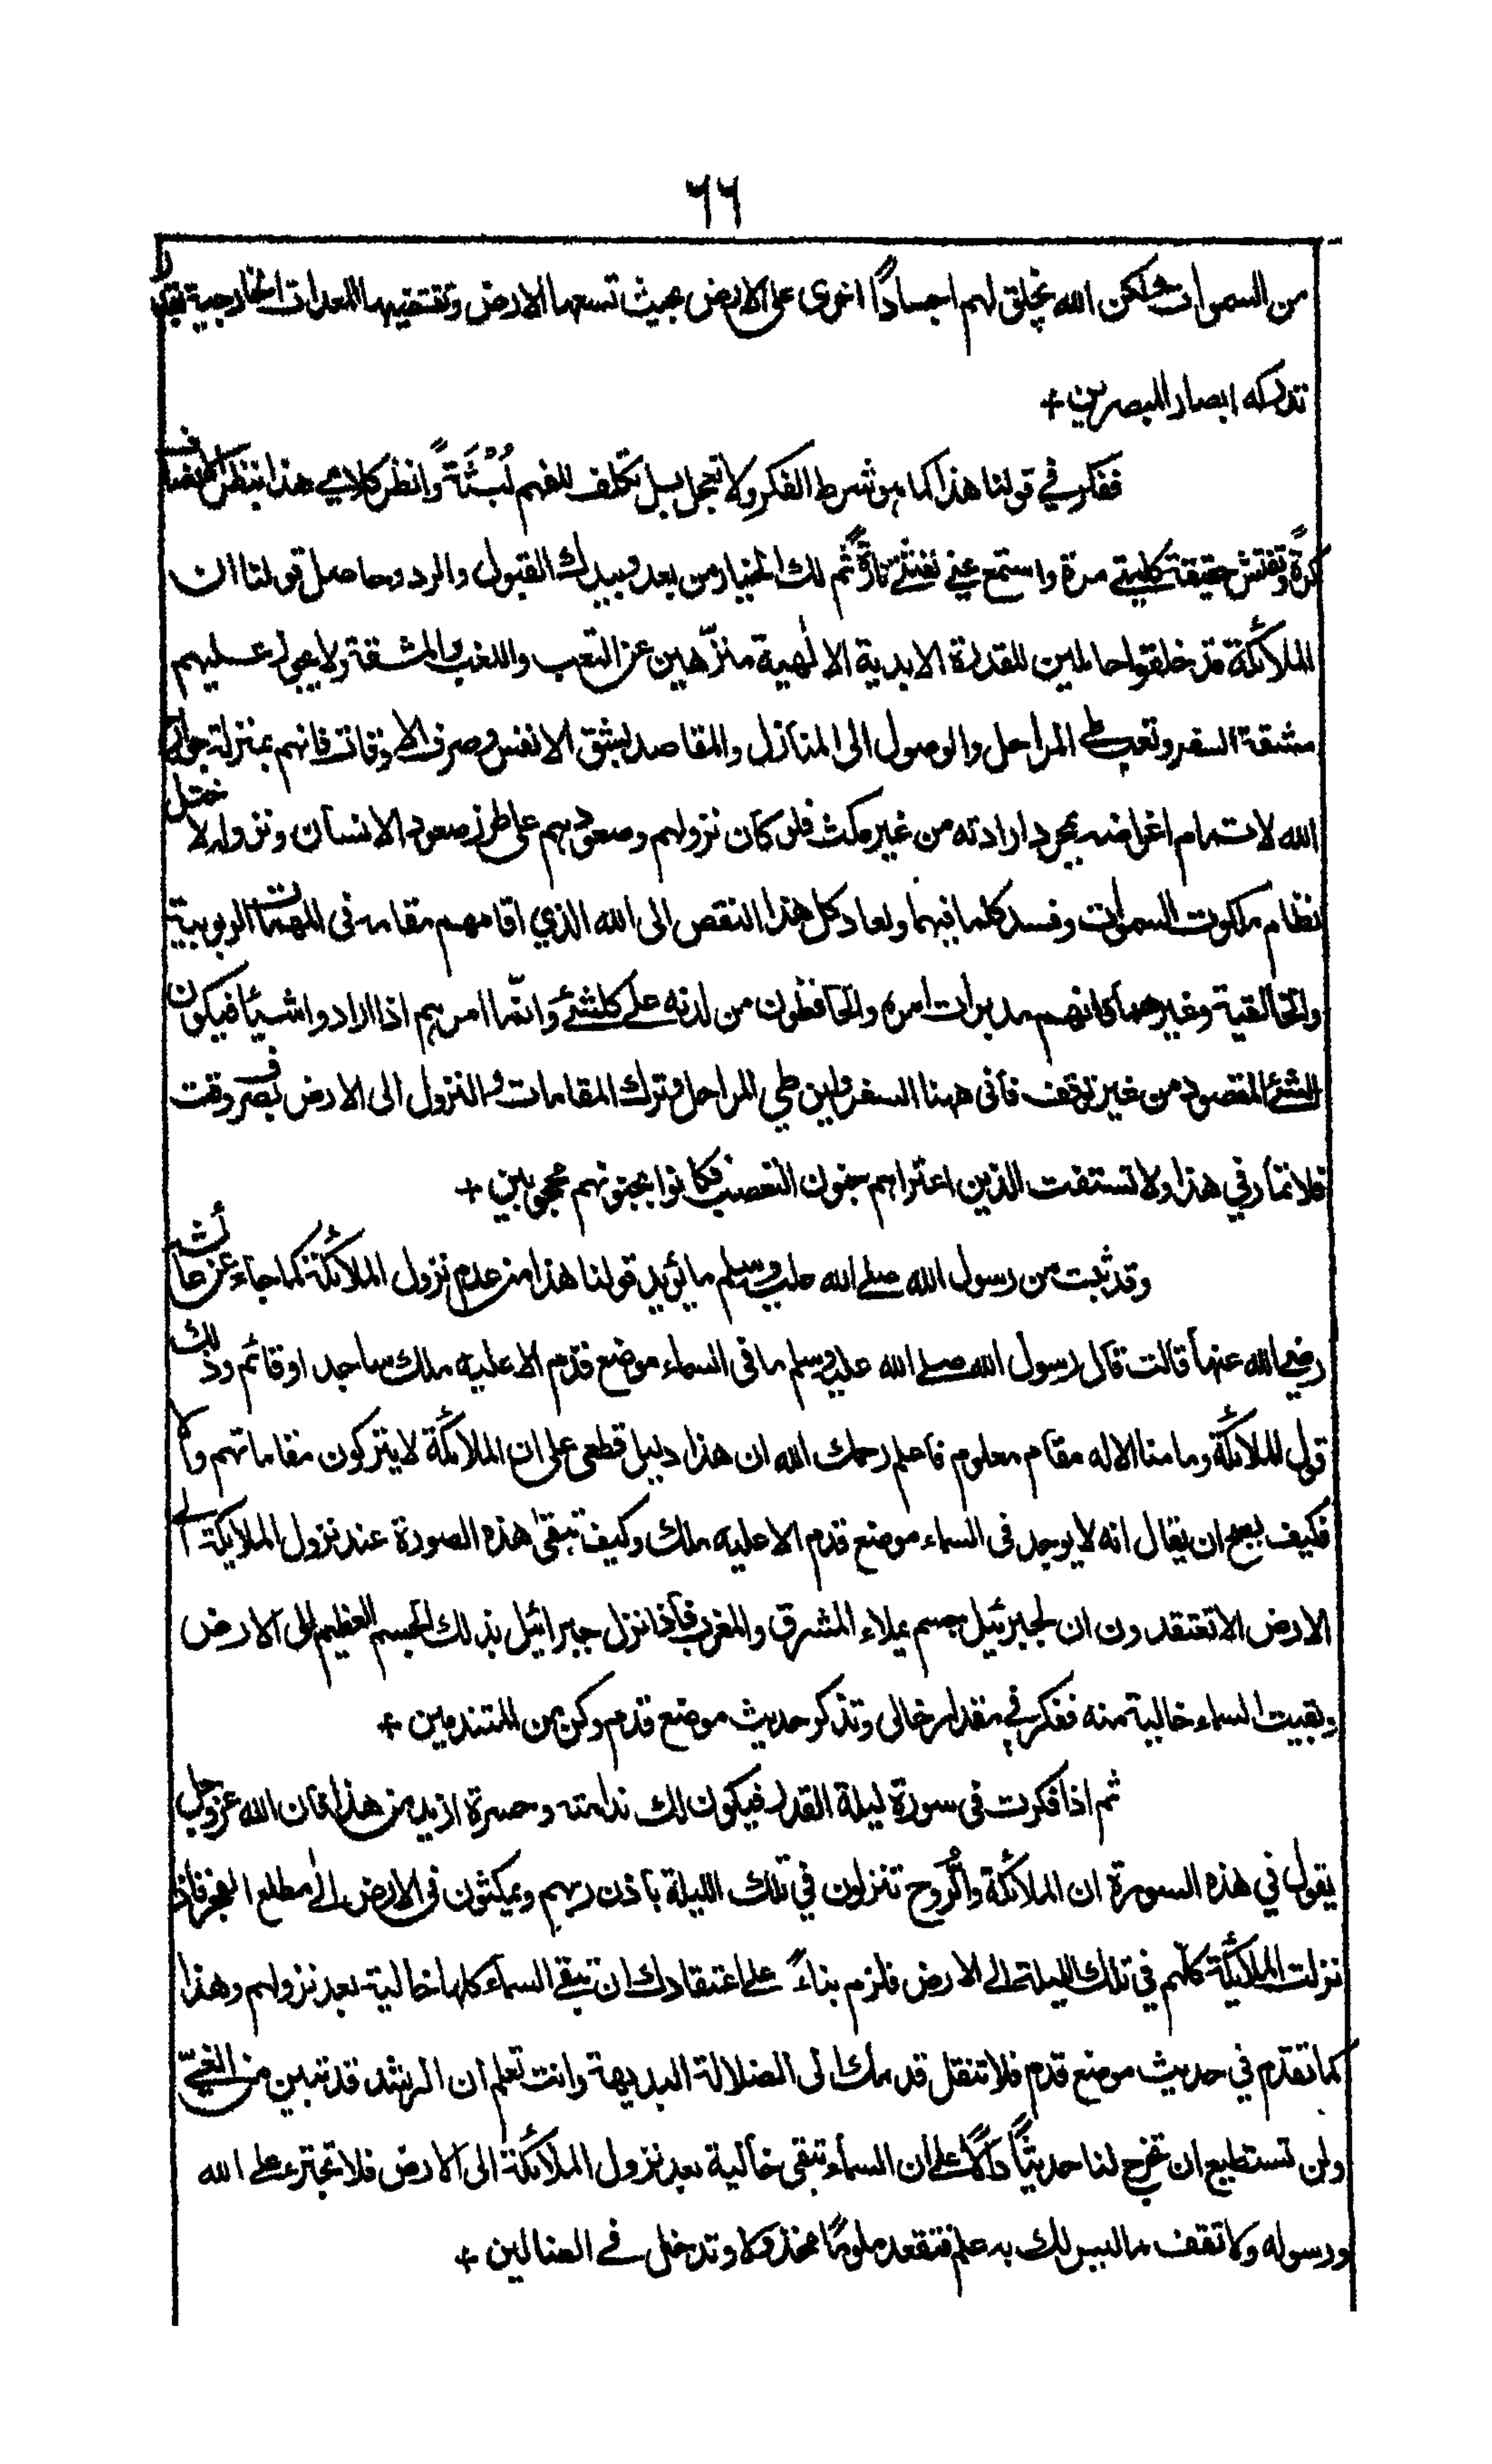 ٦٦
من السموات ولكن الله يخلق لهم اجسادًا اخرى على الارض بحيث تسعها الارض وتقتضيها المعدات الخارجية بقدر
تدركه ابصار المبصرين +
ففكر في قولنا هذا كما هو شرط الفكر ولا تعجل بل تكلف للفهم لُبْثَةً وانظر كلامي هذا بنظر الانصاف
كرةً وتفتش حقيقة كلمتي مرة واستمع عني نفثتي تارةً ثم لك الخيار من بعد وبيدك القبول والرد وحاصل قولنا ان
الملائكة قد خلقوا حاملين للقدرة الابدية الالٰهية منزّهين عن التعب واللغب والمشقة ولا يجوز عليهم
مشقة السفر وتعب طى المراحل والوصول الى المنازل والمقاصد بشق الانفس وصرف الاوقات فانهم بمنزلة جوارح
الله لاتمام اغراضه بمجرد ارادته من غير مكث فلو كان نزولهم وصعودهم على طرز صعود الانسان ونزوله لاختل
نظام ملكوت السموات وفسد كلما فيهما ولعاد كل هذا النقص الى الله الذي اقامهم مقامه فى المهمات الربوبية
والخالقية وغيرهما فانهم مدبرات امره والحافظون من لدنه على كلشئ وانّما امرهم اذا ارادوا شيئًا فيكون
الشئ المقصود من غير توقف فأنى ههنا السفر واين طي المراحل وترك المقامات والنزول الى الارض بصرف وقت
فلا تمار في هذا ولا تستفت الذين اعتراهم جنون التعصب فكانوا بجنونهم محجوبين +
وقد ثبت من رسول الله صلى الله عليه وسلم ما يؤيد قولنا هذا من عدم نزول الملائكة كما جاء عن عائشة
رضي الله عنها قالت قال رسول الله صلى الله عليه وسلم ما فى السماء موضع قدم الا عليه ملك ساجد او قائم وذلك
قول الملائكة وما منا الا له مقام معلوم فاعلم رحمك الله ان هذا دليل قطعى على ان الملائكة لا يتركون مقاماتهم والا
فكيف يصح ان يقال انه لا يوجد فى السماء موضع قدم الا عليه ملك وكيف تبقى هذه الصورة عند نزول الملايكة الى
الارض الا تعتقدون ان لجبرئيل جسم يملاء المشرق والمغرب فاذا نزل جبرائيل بذلك الجسم العظيم الى الارض
وبقيت السماء خالية منه ففكر في مقدار خالى وتذكر حديث موضع قدم وكن من المتندمين +
ثم اذا فكرت فى سورة ليلة القدر فيكون لك ندامة وحسرة ازيد من هذا فان الله عز وجل
يقول في هذه السورة ان الملائكة والرُّوح تنزلون في تلك الليلة باذن ربهم ويمكثون فى الارض الى مطلع الفجر فاذا
نزلت الملائكة كلهم في تلك الليلة الى الارض فلزم بناءً على اعتقادك ان تبقى السماء كلها خالية بعد نزولهم وهذا
كما تقدم في حديث موضع قدم فلا تنقل قدمك الى الضلالة البديهة وانت تعلم ان الرشد قد تبين من الغيّ
ولن تستطيع ان تخرج لنا حديثًا دالًا على ان السماء تبقى خالية بعد نزول الملائكة الى الارض فلا تجترء على الله
ورسوله ولا تقف ما ليس لك به علم فتقعد ملومًا مخذولا وتدخل في الضالين +